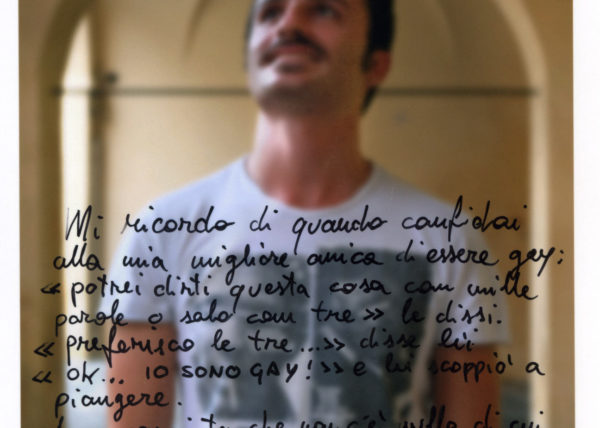 Mi ricordo di quando confidai
alla mia migliore amica di essere gay:
« potrei dirti questa cosa con mille
parole o solo con tre » le dissi.
« preferisco le tre...» disse lei
« ok... IO SONO GAY!» e lei scoppiò a
piangere.
che non c'è nulla di cui